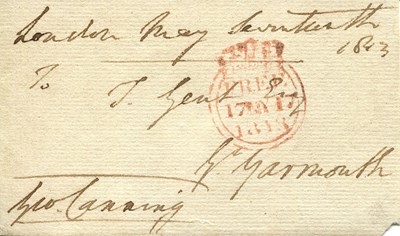 London May Seventeenth
1813
To
T. Gent Esq
FREE
17 MY 17
1813
Gt Yarmouth
Geo. Canning